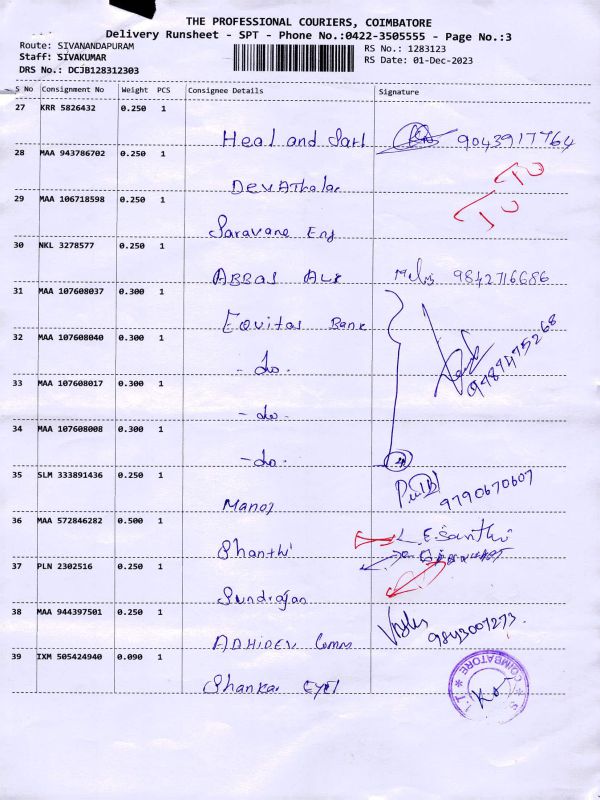 THE PROFESSIONAL COURIERS, COIMBATORE
Delivery Runsheet - SPT - Phone No.:0422-3505555 - Page No.:3
Route: SIVANANDAPURAM
RS No.: 1283123
Staff: SIVAKUMAR
RS Date: 01-Dec-2023
DRS No.: DCJB128312303
S No Consignment No Weight PCS Consignee Details Signature
27 KRR 5826432 0.250 1
Heal and 9043917764
28 MAA 943786702 0.250 1
29 MAA 106718598 0.250 1
Saravane Eng
30 NKL 3278577 0.250 1
ABBAS ALI 9842716686
31 MAA 107608037 0.300 1
Equitas Bank
32 MAA 107608040 0.300 1
- do -
33 MAA 107608017 0.300 1
- do -
34 MAA 107608008 0.300 1
- do - 4
35 SLM 333891436 0.250 1
Manoj 9790670607
36 MAA 572846282 0.500 1
Shanthi L.E.Santhi
37 PLN 2302516 0.250 1
Sundrajan
38 MAA 944397501 0.250 1
ADHIDEV Comm 9843007273
39 IXM 505424940 0.090 1
Shankar EYE
COIMBATORE